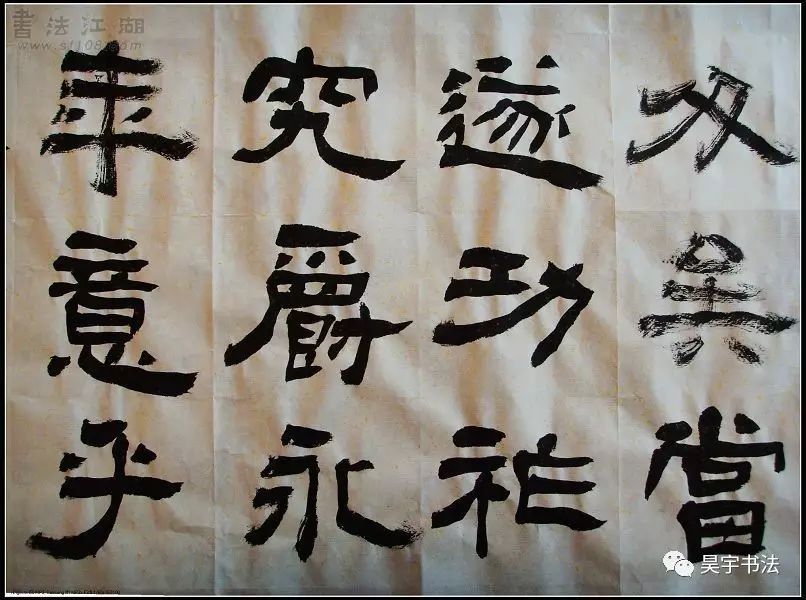 書法江湖
www.sf108.com
久矣當
遂功祚
究爵永
年意乎
昊宇书法